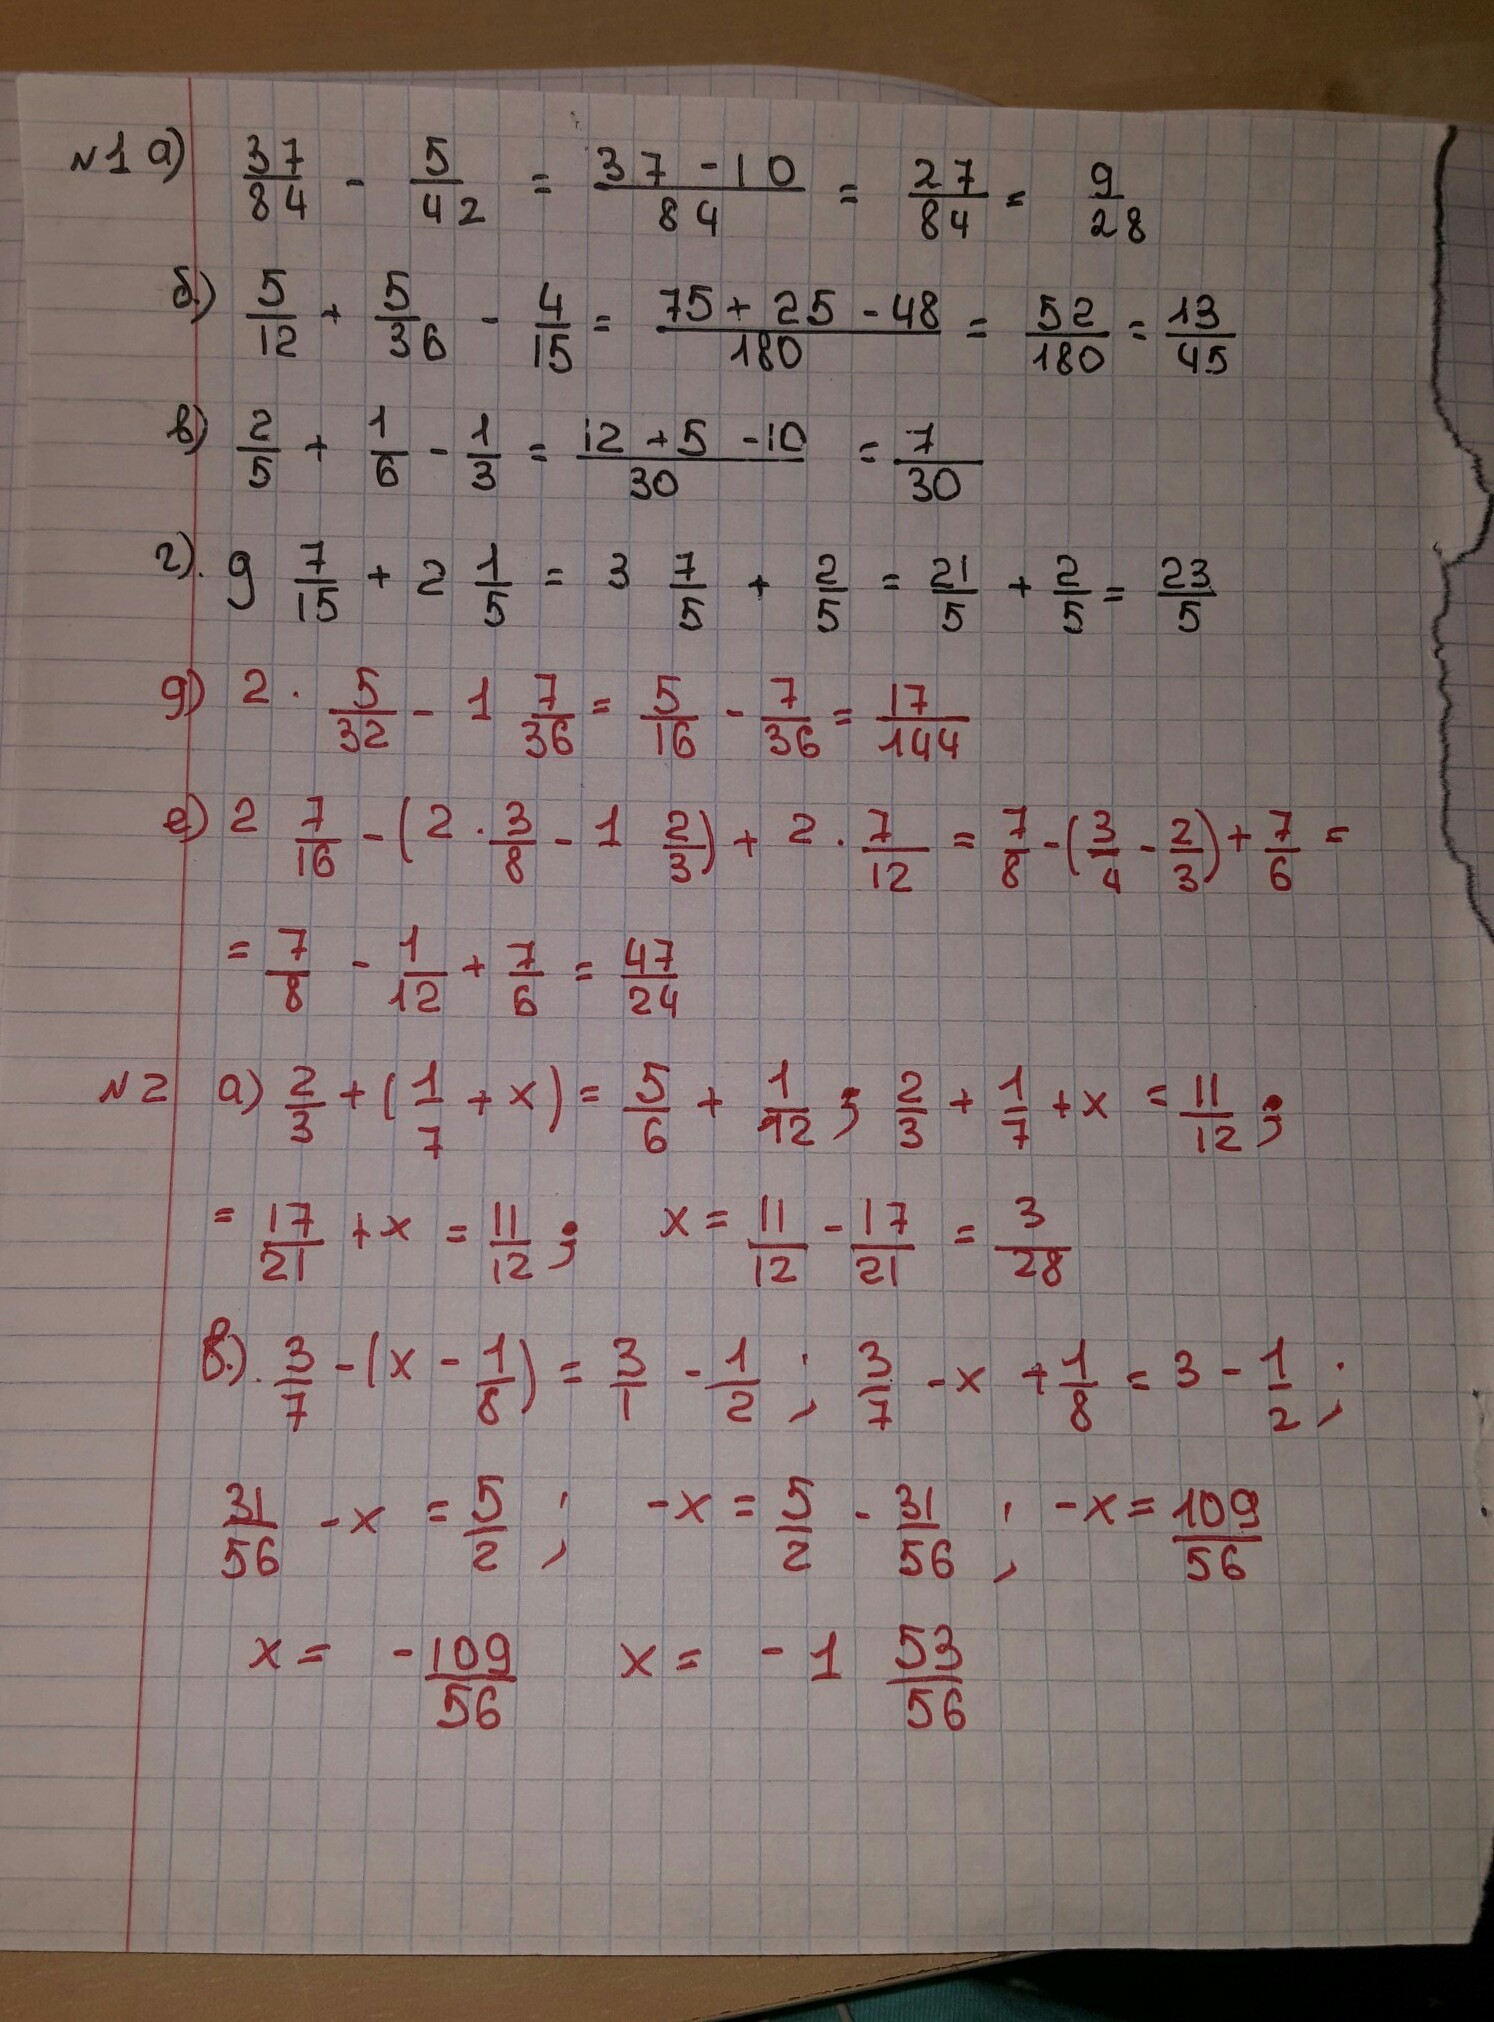 №1 а) 37/84 - 5/42 = (37 - 10)/84 = 27/84 = 9/28
б) 5/12 + 5/36 - 4/15 = (75 + 25 - 48)/180 = 52/180 = 13/45
в) 2/5 + 1/6 - 1/3 = (12 + 5 - 10)/30 = 7/30
г). 9 7/15 + 2 1/5 = 3 7/5 + 2/5 = 21/5 + 2/5 = 23/5
g) 2 · 5/32 - 1 7/36 = 5/16 - 7/36 = 17/144
е) 2 7/16 - (2 · 3/8 - 1 2/3) + 2 · 7/12 = 7/8 - (3/4 - 2/3) + 7/6 =
= 7/8 - 1/12 + 7/6 = 47/24
№2 а) 2/3 + (1/7 + x) = 5/6 + 1/12 ; 2/3 + 1/7 + x = 11/12 ;
= 17/21 + x = 11/12 ; x = 11/12 - 17/21 = 3/28
в). 3/7 - (x - 1/8) = 3/1 - 1/2 ; 3/7 - x + 1/8 = 3 - 1/2 ;
31/56 - x = 5/2 ; -x = 5/2 - 31/56 ; -x = 109/56
x = - 109/56 x = - 1 53/56